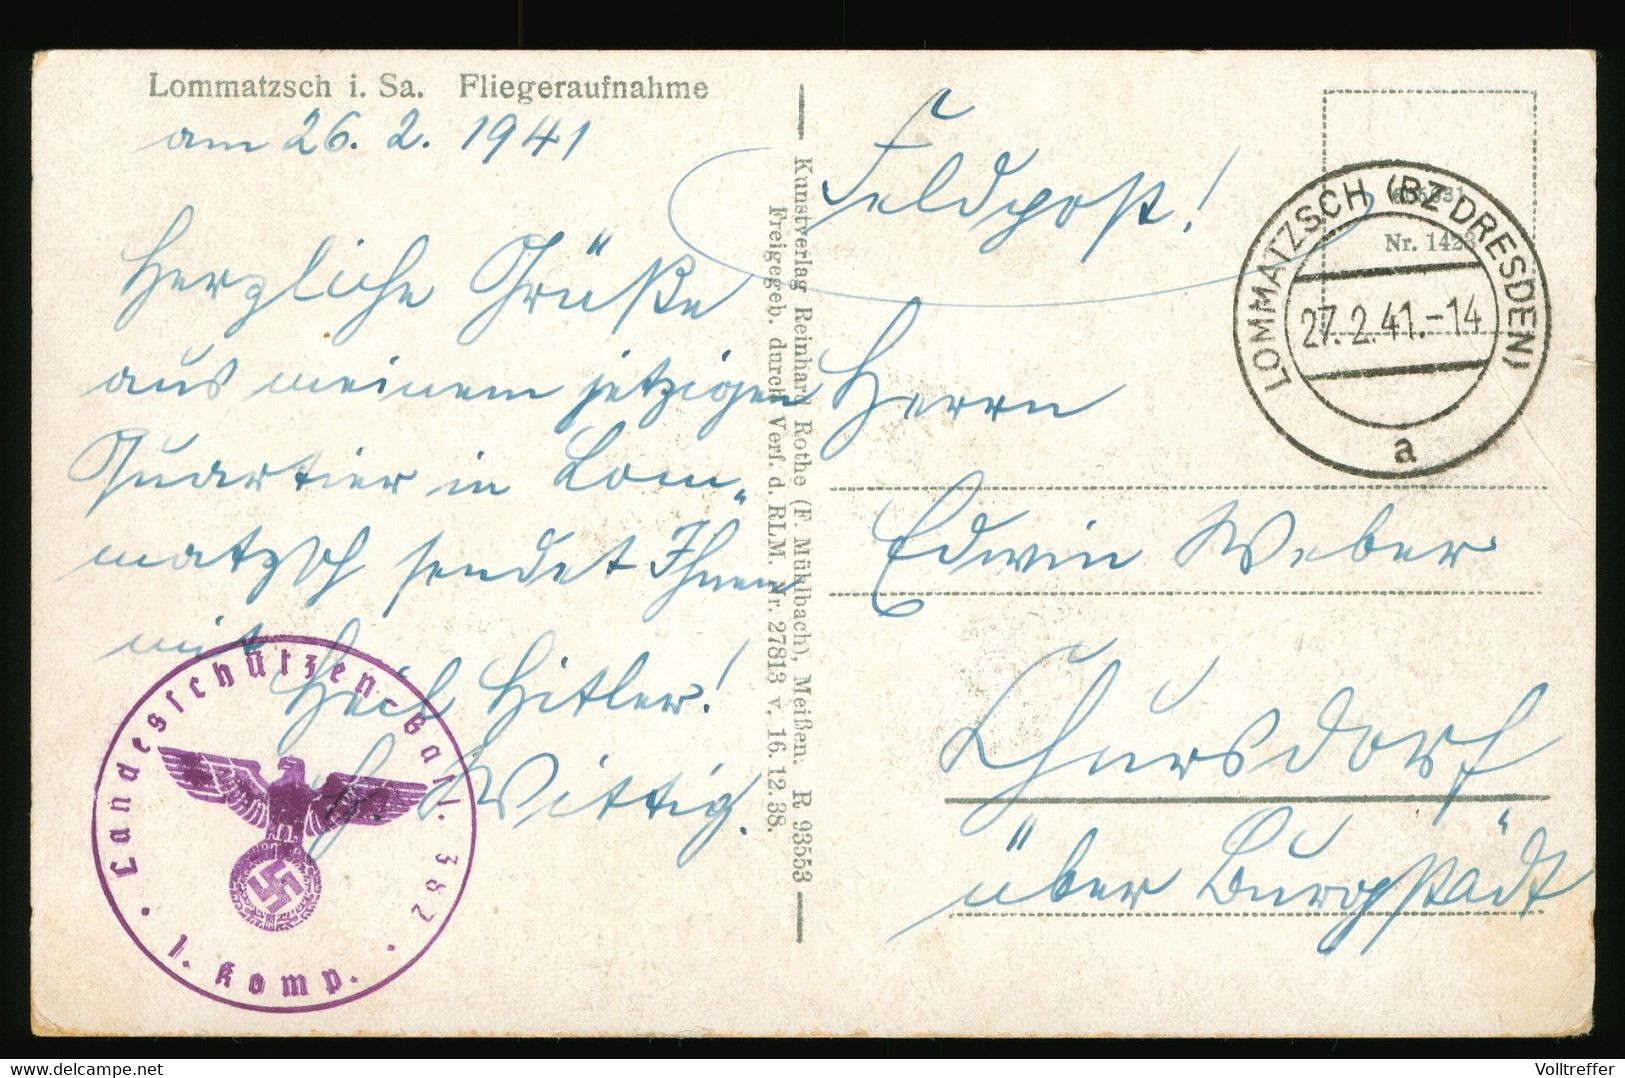 Lommatzsch i. Sa. Fliegeraufnahme
am 26. 2. 1941
Herzliche Grüße
aus meinem jetzigen
Quartier in Lom„
matzsch sendet Ihnen
mit
Heil Hitler!
Wittig.
Landesschützen-Batl. 382
1. Komp.
Kunstverlag Reinhard Rothe (F. Mühlbach), Meißen. R 93553
Freigegeb. durch Verf. d. RLM. Nr. 27813 v. 16. 12. 38.
Feldpost!
Nr. 1423
LOMMATZSCH (BZ DRESDEN)
27.2.41.-14
a
Herrn
Edwin Weber
Chursdorf
über Burgstädt
Volltreffer